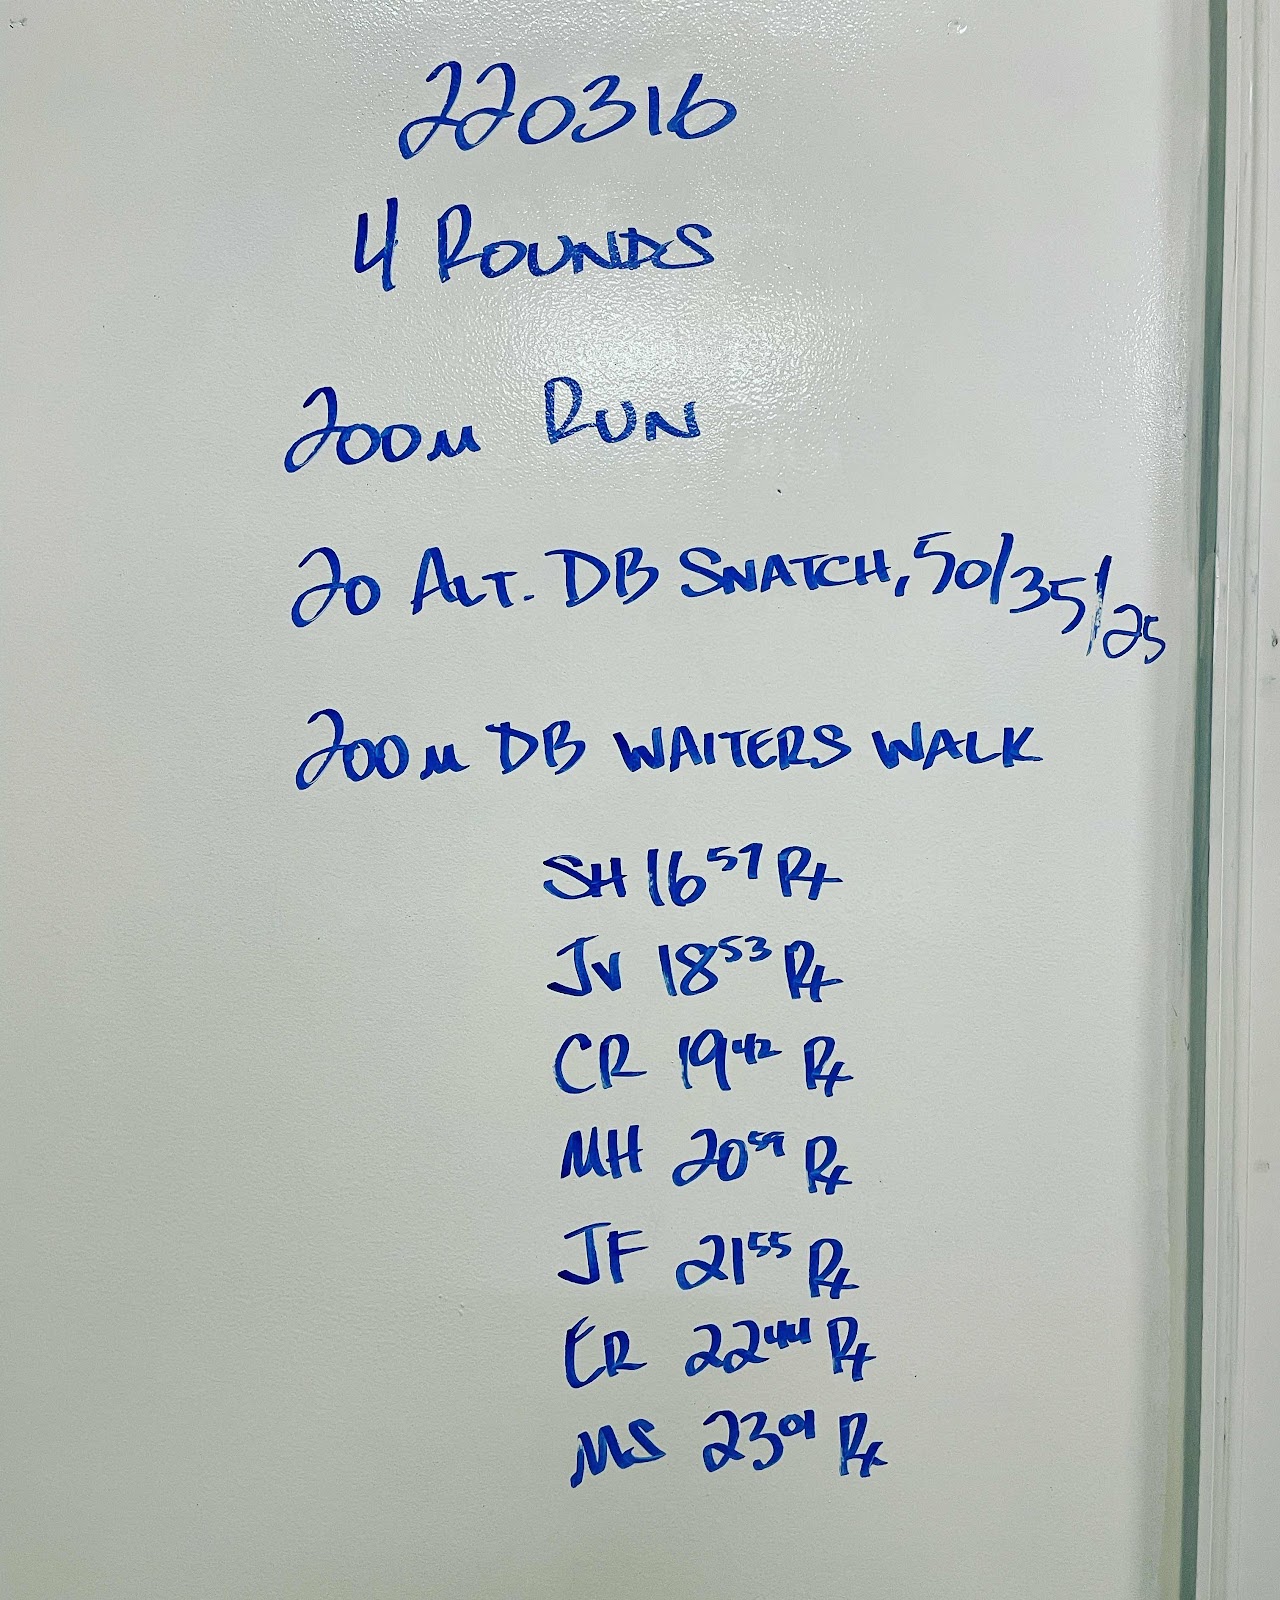 220316
4 ROUNDS
200M RUN
20 ALT. DB SNATCH, 50/35/25
200M DB WAITERS WALK
SH 16 57 Rx
JV 18 53 Rx
CR 19 42 Rx
MH 20 59 Rx
JF 21 55 Rx
ER 22 44 Rx
MS 23 01 Rx